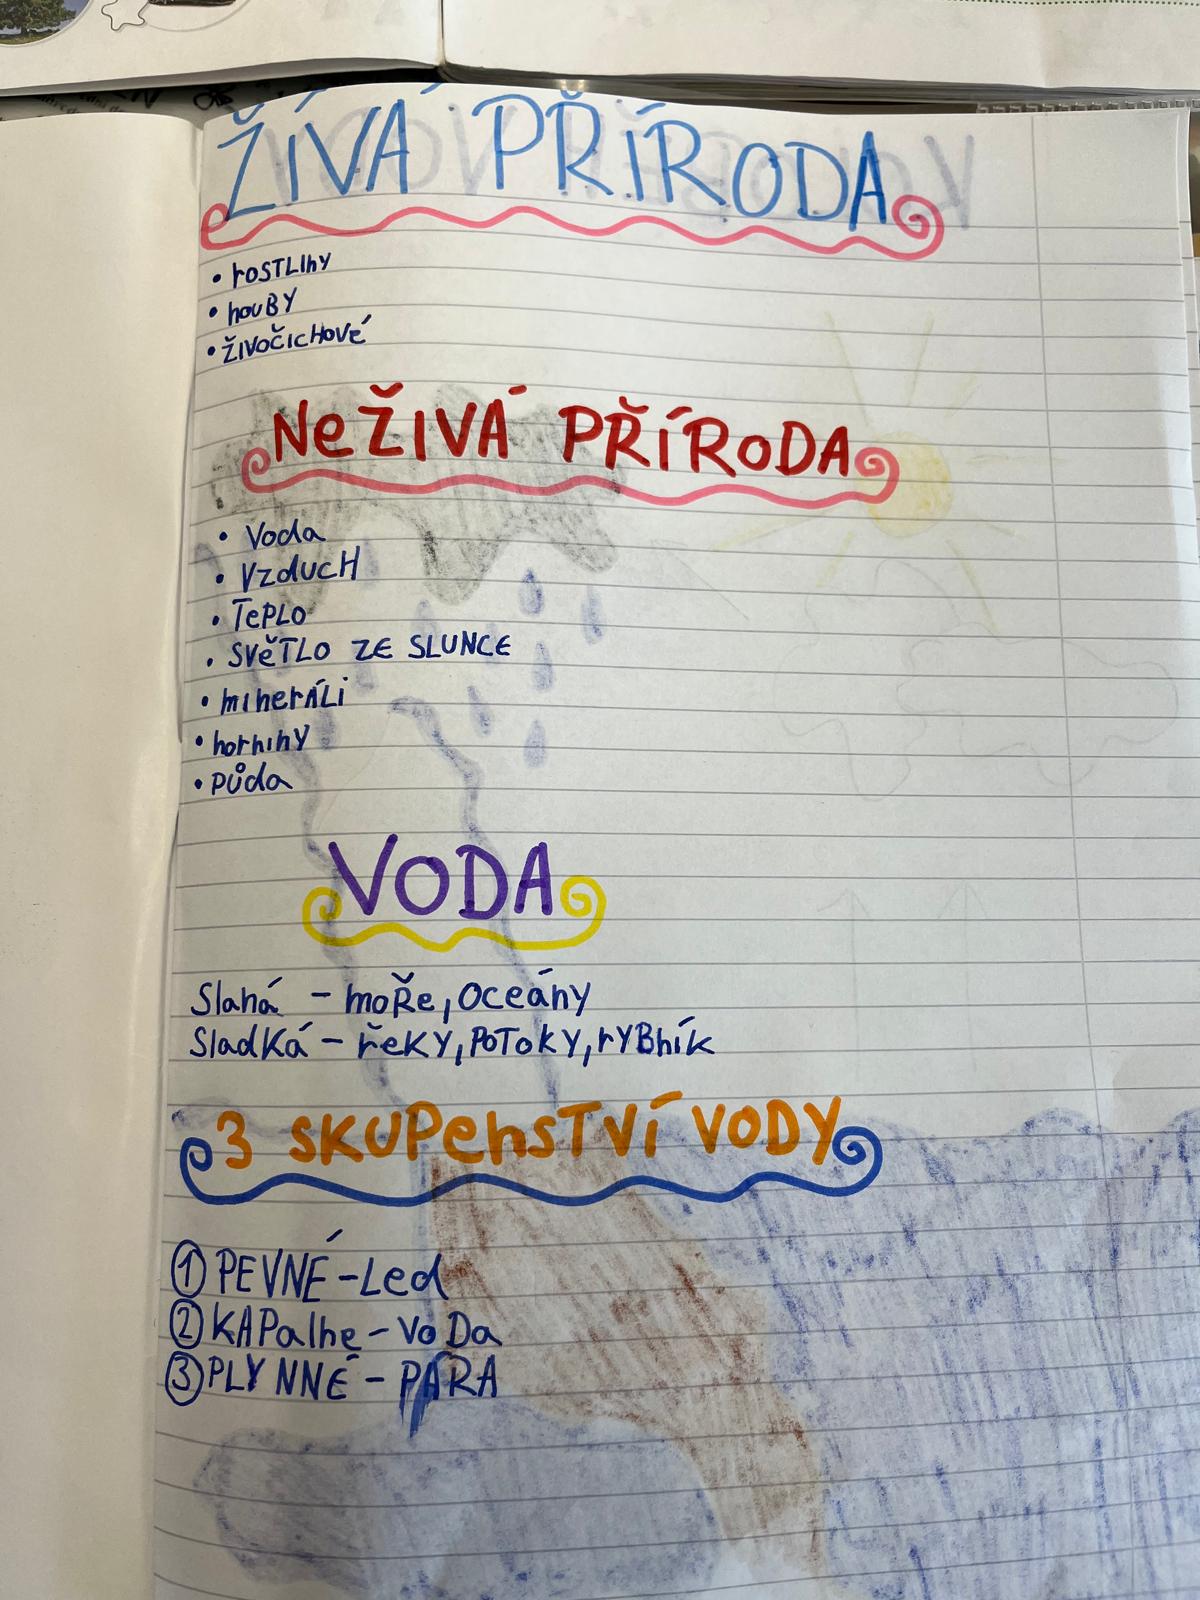 ŽÍVÁ PŘÍRODA
• rostliny
• houby
• živočichové
Neživá příroda
• Voda
• Vzduch
• Teplo
• světlo ze slunce
• mineráli
• horniny
• půda
VODA
Slaná – moře, oceány
Sladká – řeky, potoky, rybník
3 skupenství vody
① PEVNÉ – Led
② KAPalné – voDa
③ PLYNNÉ – PÁRA